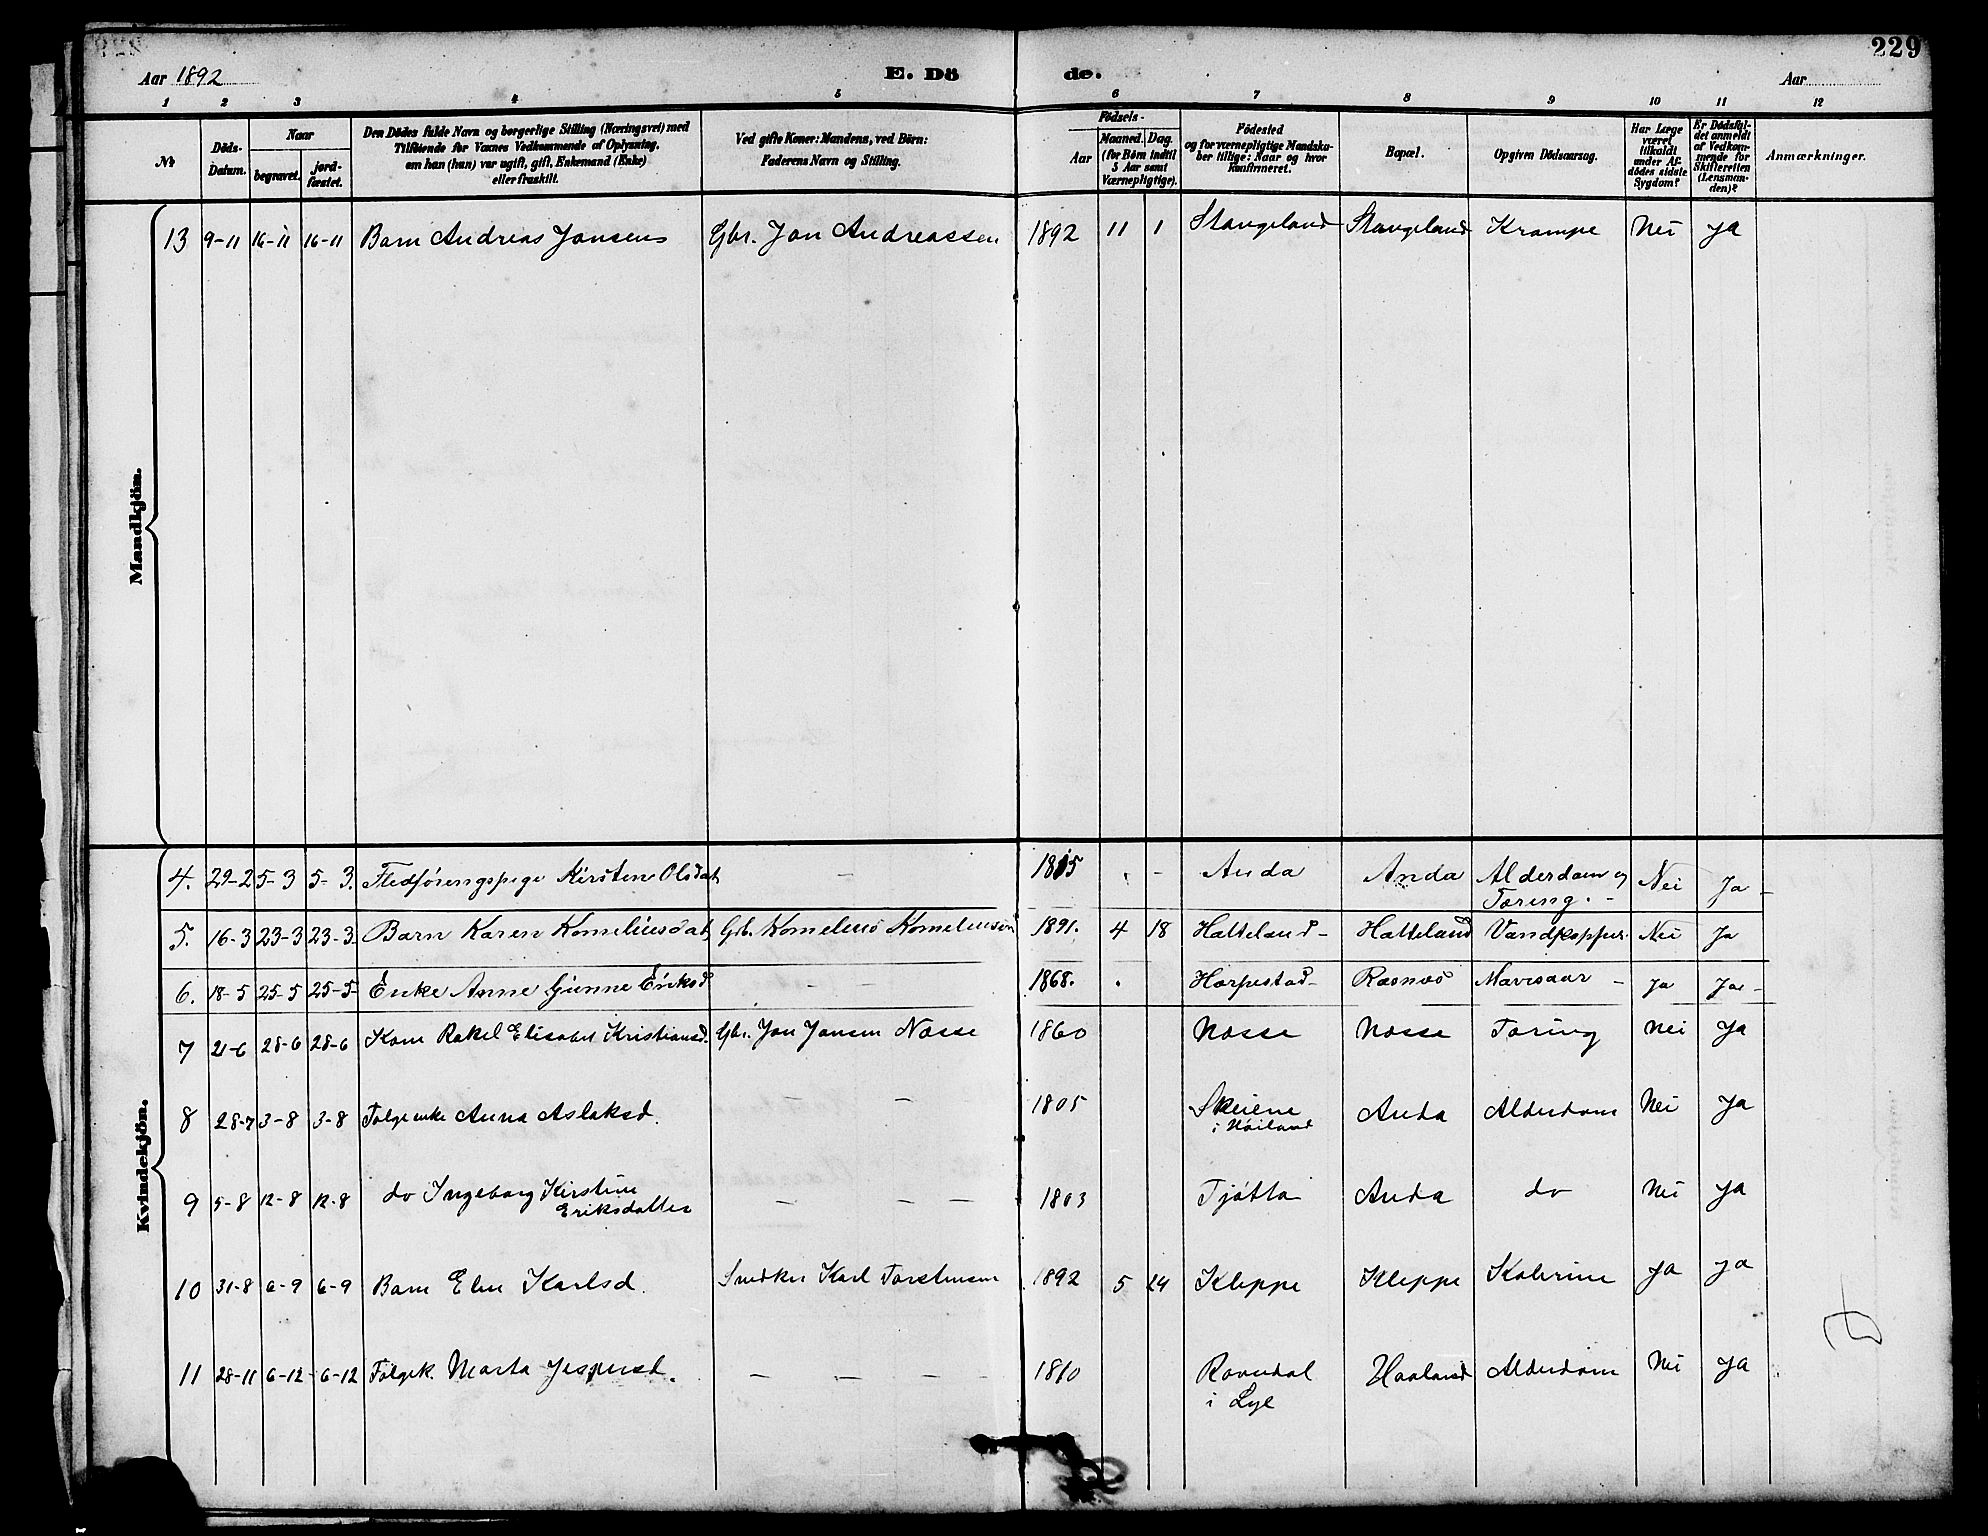 229
Aar 1892
E. Dö
de.
Aar
1 2 3 4 5 6 7 8 9 10 11 12
№
Döds-
Datum.
Naar
begravet.
jord-
fæstet.
Den Dödes fulde Navn og borgerlige Stilling (Næringsvei) med
Tilföiende for Voxnes Vedkommende af Oplysning,
om han (hun) var ugift, gift, Enkemand (Enke)
eller fraskilt.
Ved gifte Koner: Mandens, ved Börn:
Faderens Navn og Stilling.
Födsels-
Aar
Maaned. Dag.
(for Börn indtil
5 Aar samt
Værnepligtige).
Födested
og for værnepligtige Mandska-
ber tillige: Naar og hvor
Konfirmeret.
Bopæl.
Opgiven Dödsaarsag.
Har Læge
været
tilkaldt
under Af-
dödes sidste
Sygdom?
Er Dödsfal-
det anmeldt
af Vedkom-
mende for
Skifteretten
(Lensman-
den)?
Anmærkninger.
Mandkjön.
13 9-11 16-11 16-11 Barn Andreas Jansens Gbr. Jan Andreassen 1892 11 1 Stangeland Stangeland Krampe Nei Ja
Kvindekjön.
4. 29-2 5-3 5-3. Fledföringspige Kirsten Olsdat — 1815 . - Anda Anda Alderdom og Nei Ja -
Tæring. -
5. 16-3 23-3 23-3 Barn Karen Kornelius dat Gb. Kornelius Korneliussen 1891. 4 18 Hatteland - Hatteland Vandkopper. Nei Ja
6. 18-5 25-5 25-5- Enke Anne Gunne Eriksd - - 1868. . Harpestad - Rosnæs Mavesaar - Ja Ja -
7 21-6 28-6 28-6 Kone Rakel Elisabet Kristiansd. Gbr. Jon Jansen Næsse 1860 Næsse Næsse Tæring Nei Ja
8 28-7 3-8 3-8 Folgeenke Anna Aslaksd. - — 1805 Skeiene Anda Alderdom Nei Ja
i Höiland
9 5-8 12-8 12-8 do Ingeborg Kirstine — — — 1803 Tjötta Anda do Nei Ja
Eriksdatter
10 31-8 6-9 6-9 Barn Elen Karlsd. Snedker Karl Torstensen 1892 5 24 Kleppe Kleppe Kolerine Ja Ja
11 28-11 6-12 6-12 Folgek. Marta Jespersd. — — — — 1810 Haaland Alderdom Nei Ja
i Lye